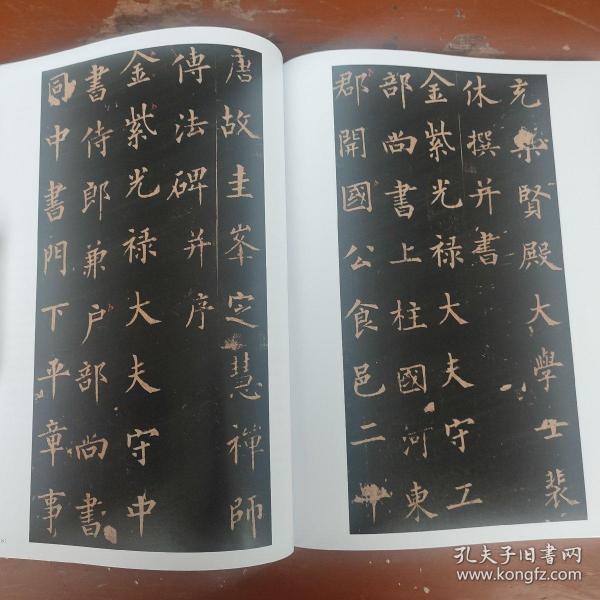 唐故圭峯定慧禪師
傳法碑并序
金紫光禄大夫守中
書侍郎兼户部尚書
同中書門下平章事
充集賢殿大學士裴
休撰并書
金紫光禄大夫守工
部尚書上柱國河東
郡開國公食邑二千
孔夫子旧书网
www.kongfz.com